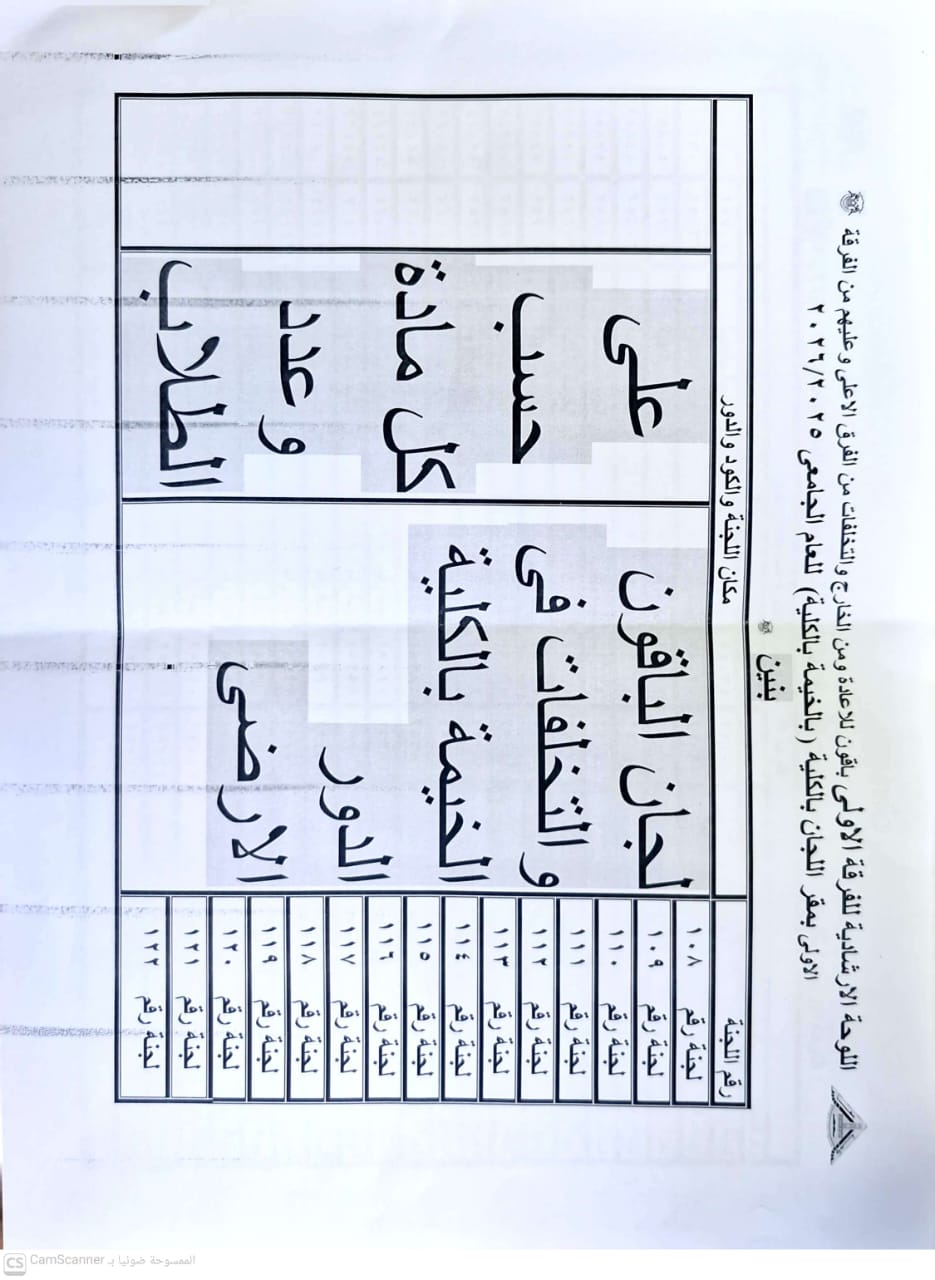 اللوحة الارشادية للفرقة الاولى باقون للاعادة ومن الخارج والتخلفات من الفرق الاعلى وعليهم من الفرقة
الاولى بمقر اللجان بالكلية (بالخيمة بالكلية) للعام الجامعى ٢٠٢٦/٢٠٢٥
بنين
رقم اللجنة
مكان اللجنة والكود والدور
لجنة رقم ١٠٨
لجنة رقم ١٠٩
لجنة رقم ١١٠
لجنة رقم ١١١
لجنة رقم ١١٢
لجنة رقم ١١٣
لجنة رقم ١١٤
لجنة رقم ١١٥
لجنة رقم ١١٦
لجنة رقم ١١٧
لجنة رقم ١١٨
لجنة رقم ١١٩
لجنة رقم ١٢٠
لجنة رقم ١٢١
لجنة رقم ١٢٢
لجان الباقون
والتخلفات فى
الخيمة بالكلية
الدور
الارضى
على
حسب
كل مادة
وعدد
الطلاب
CS CamScanner الممسوحة ضوئيا بـ